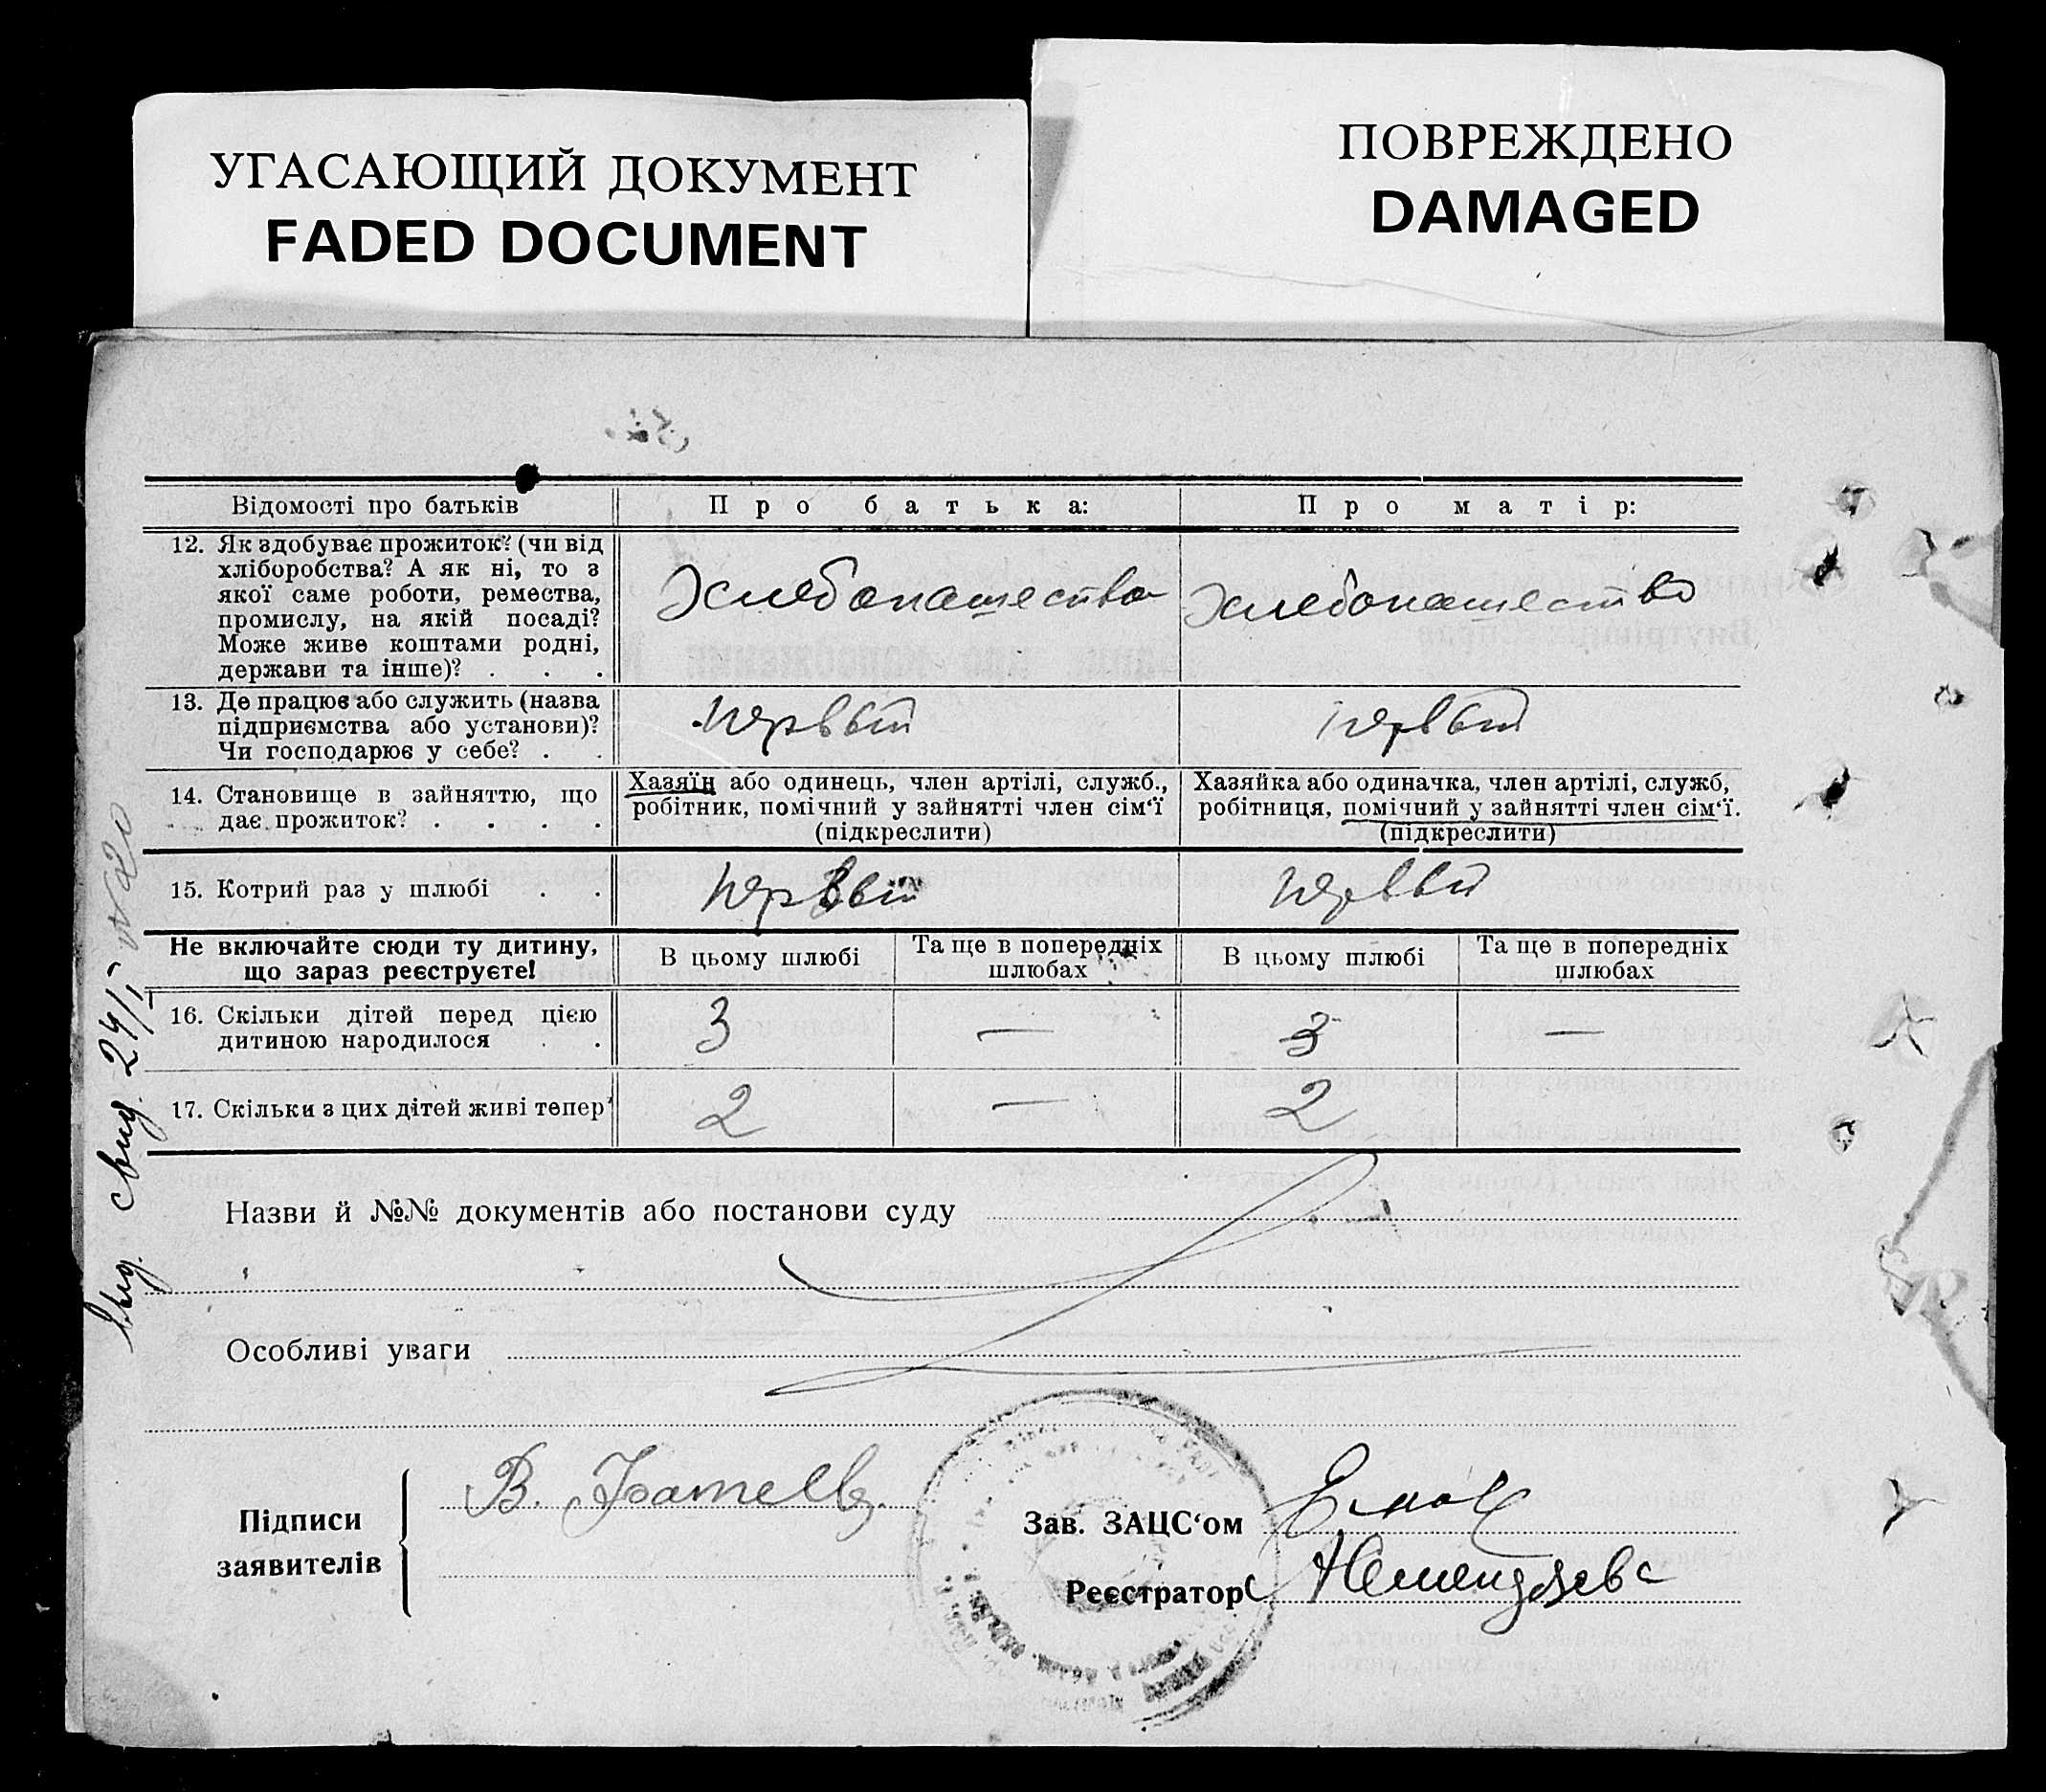 УГАСАЮЩИЙ ДОКУМЕНТ
FADED DOCUMENT
ПОВРЕЖДЕНО
DAMAGED
Відомості про батьків
Про батька:
Про матір:
12. Як здобуває прожиток? (чи від
хліборобства? А як ні, то з
якої саме роботи, ремества,
промислу, на якій посаді?
Може живе коштами родні,
держави та інше)? . . .
Хлебопашество
Хлебопашество
13. Де працює або служить (назва
підприємства або установи)?
Чи господарює у себе? . .
первый
первый
14. Становище в зайняттю, що
дає прожиток? . . . .
Хазяїн або одинець, член артілі, служб.,
робітник, помічний у зайнятті член сім‘ї
(підкреслити)
Хазяйка або одиначка, член артілі, служб,
робітниця, помічний у зайнятті член сім‘ї.
(підкреслити)
15. Котрий раз у шлюбі . .
первый
первый
Не включайте сюди ту дитину,
що зараз реєструєте!
В цьому шлюбі
Та ще в попередніх
шлюбах
В цьому шлюбі
Та ще в попередніх
шлюбах
16. Скільки дітей перед цією
дитиною народилося . .
3
—
3
—
17. Скільки з цих дітей живі тепер
2
—
2
Назви й №№ документів або постанови суду
Особливі уваги
Підписи
заявителів
В.
Зав. ЗАЦС‘ом
Реєстратор
Выд. свид. 24/I № 20